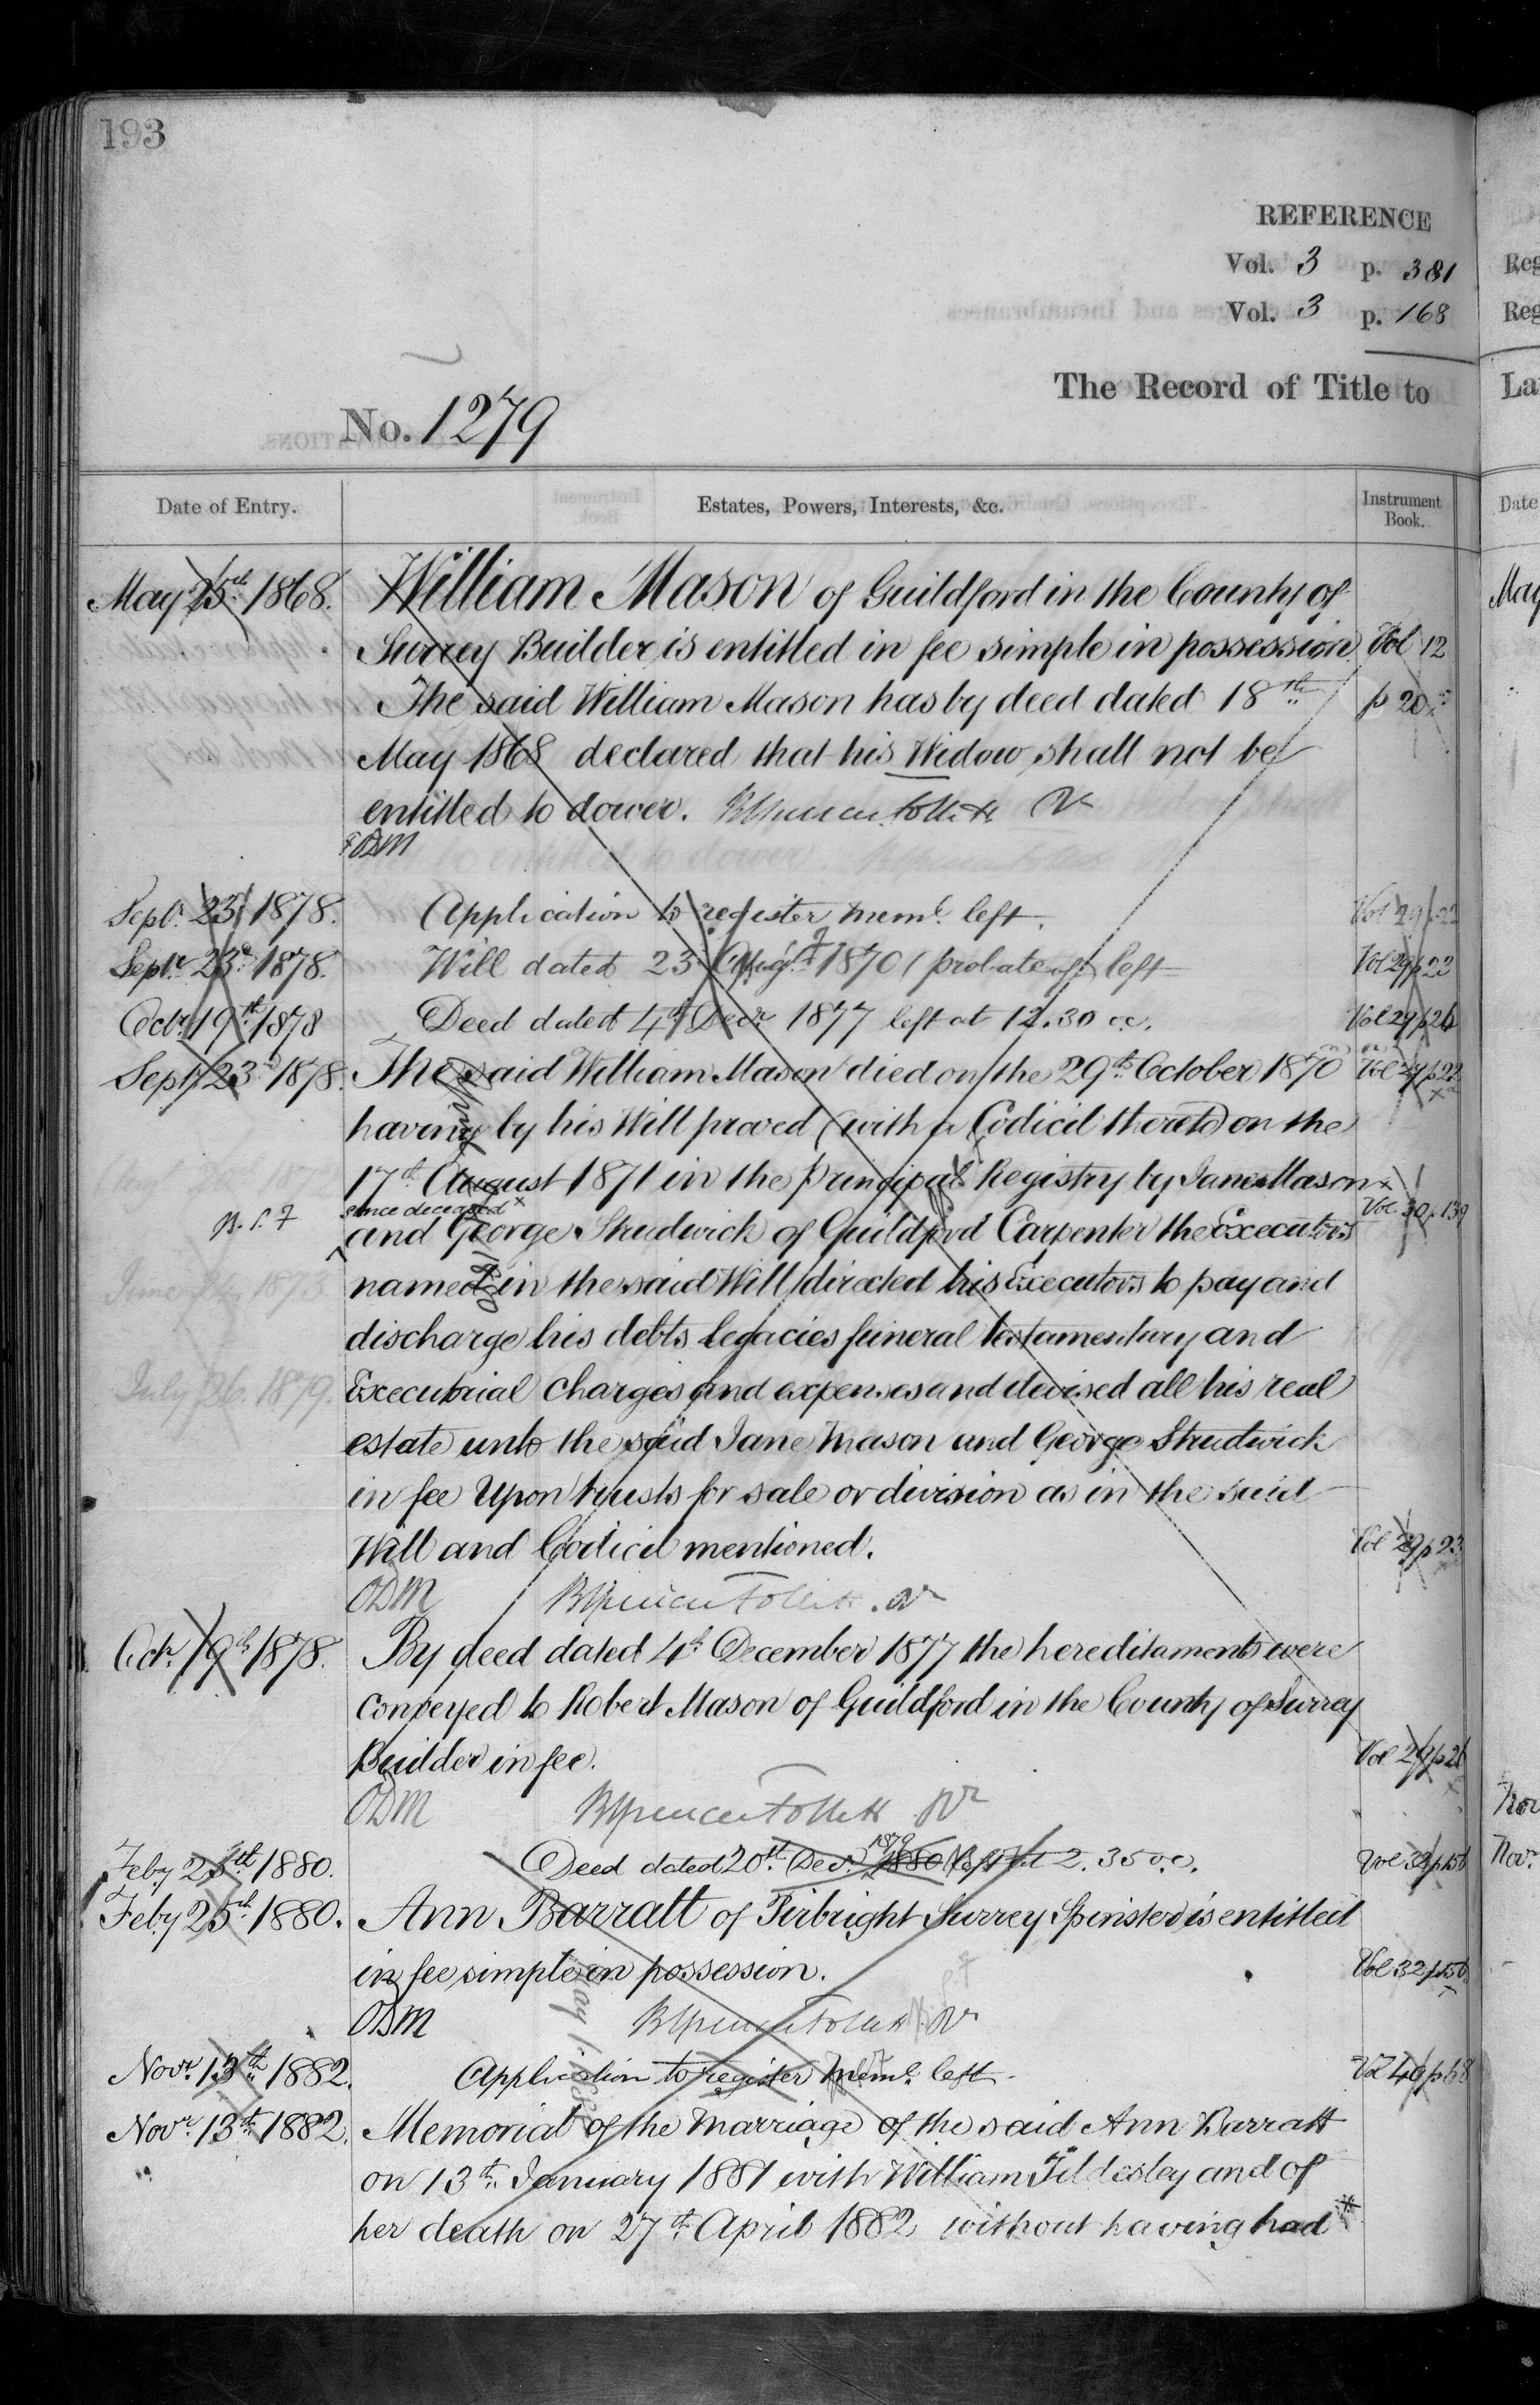 193
REFERENCE
Vol. 3 p. 381
Vol. 3 p. 168
The Record of Title to
No. 1279
Date of Entry.
Estates, Powers, Interests, &c.
Instrument Book.
May 25th 1868. William Mason of Guildford in the County of
Surrey Builder is entitled in fee simple in possession. Vol 12
The said William Mason has by deed dated 18th p 20
May 1868 declared that his Widow shall not be
entitled to dower.
ODM
Septr. 23d 1878. Application to register meml. left. Vol 29 p 22
Septr. 23d 1878. Will dated 23d Augt. 1870 (probate of) left Vol 29 p 22
Octr. 19th 1878 Deed dated 4th Decr. 1877 left at 12.30 oc. Vol 29 p 26
Septr. 23d 1878. The said William Mason died on the 29th October 1870 Vol 29 p 22
having by his Will proved (with a Codicil thereto) on the
17th August 1871 in the principal Registry by Jane Mason x
since deceased x
and George Strudwick of Guildford Carpenter the Executors Vol 30 p 139
named in the said Will directed his Executors to pay and
June 1873.
discharge his debts legacies funeral testamentary and
Executorial charges and expenses and devised all his real
July 26. 1879.
estate unto the said Jane Mason and George Strudwick
in fee Upon trusts for sale or division as in the said
Will and Codicil mentioned. Vol 29 p 23
ODM
Octr. 19th 1878. By deed dated 4th December 1877 the hereditaments were
conveyed to Robert Mason of Guildford in the County of Surrey
Builder in fee. Vol 29 p 26
ODM
1879
Feby 25th 1880. Deed dated 20th Decr. 1880 left at 2.35 o.c. Vol 32 p 156
Feby 25th 1880. Ann Barratt of Pirbright Surrey Spinster is entitled
in fee simple in possession. Vol 32 p 156
ODM
Novr. 13th 1882. Application to register meml. left. Vol 40 p 68
Novr. 13th 1882. Memorial of the Marriage of the said Ann Barratt
on 13th January 1881 with William Tildesley and of
her death on 27th April 1882 without having had *
Reg
Reg
La
Date
May
Nov
Novr.